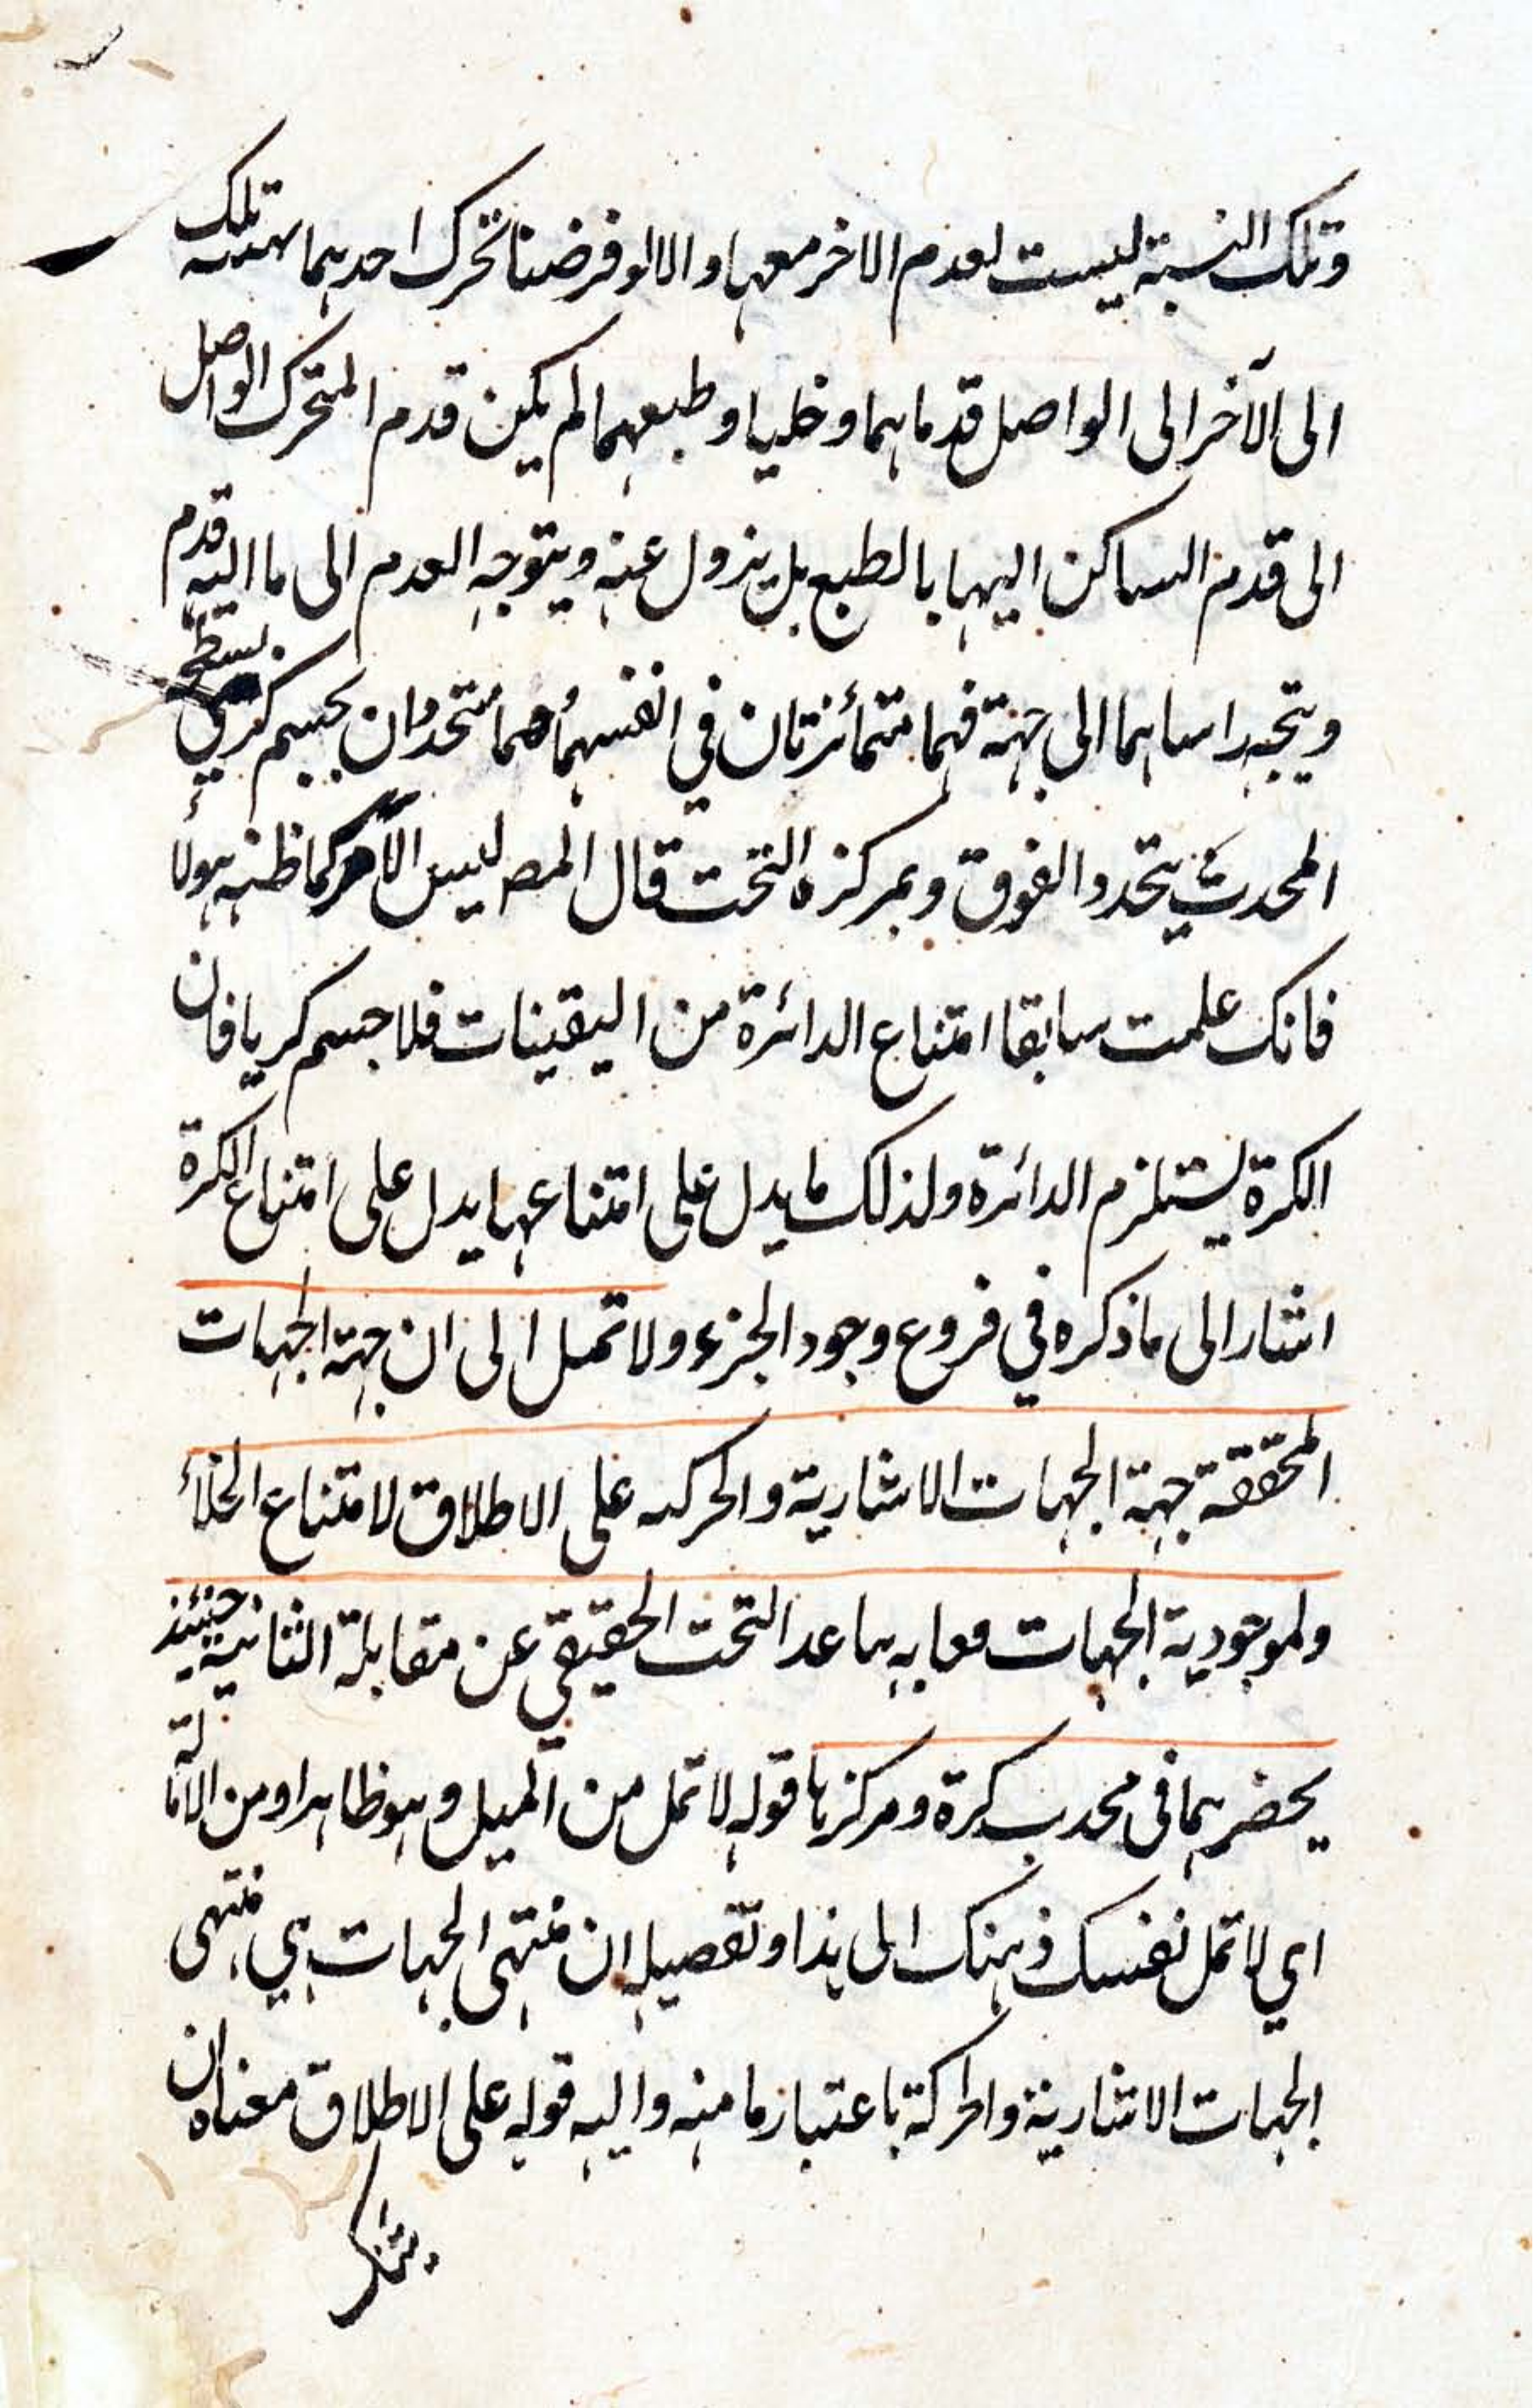 وتلك النسبة ليست لعدم الاخر معها والا لو فرضنا تحرك احدهما تلك
الى الآخر الى الواصل قدماهما وخليا وطبعهما لم يكن قدم المتحرك الواصل
الى قدم الساكن اليها بالطبع بل يزول عنه ويتوجه العدم الى ما اليه قدم
ويتجه راساهما الى جهة فهما متمائزتان في انفسهما وهما متحددان بجسم كري بسطح
المحدث يتحدد الفوق وبمركزه التحت قال المص ليس الامر كما ظنه هولاء
فانك علمت سابقا امتناع الدائرة من اليقينات فلا جسم كريا فان
الكرة يستلزم الدائرة ولذلك ما يدل على امتناعها يدل على امتناع الكرة
اشار الى ما ذكره في فروع وجود الجزء ولا تمل الى ان جهة الجهات
المحققة جهة الجهات الاشارية والحركه على الاطلاق لامتناع الخلأ
ولموجودية الجهات فما به بهما عدا التحت الحقيقي عن مقابلة الثانية حينئذ
يحضرهما فى محدب كرة ومركزها قوله لا تمل من الميل وهو ظاهر او من الامالة
اي لا تمل نفسك ذهنك الى هذا وتفصيله ان منتهى الجهات هي منتهى
الجهات الاشارية والحركة باعتبار ما منه واليه قوله على الاطلاق معناه ان